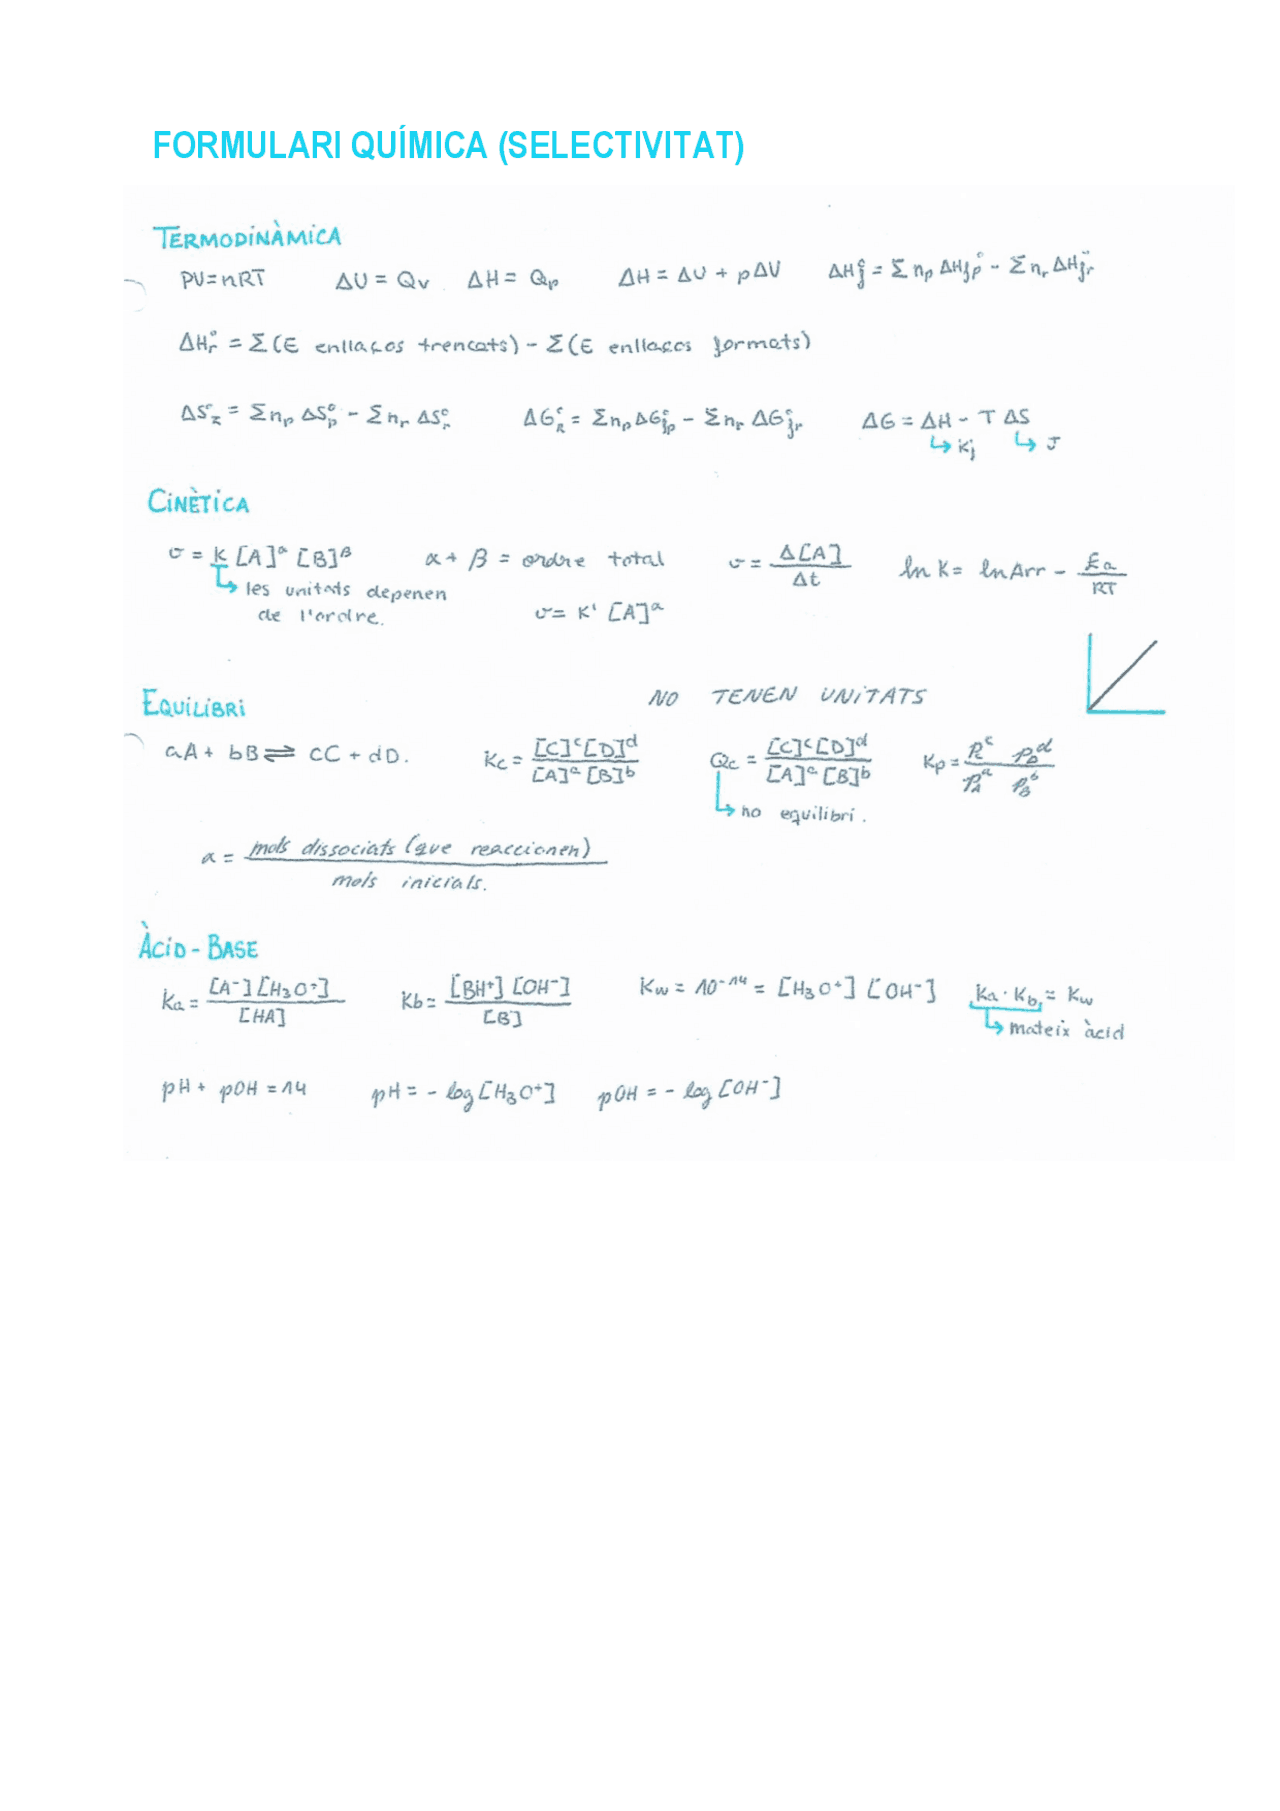 FORMULARI QUÍMICA (SELECTIVITAT)
TERMODINÀMICA
PV=nRT ΔU = Qv ΔH = Qp ΔH = ΔU + pΔV ΔHf° = Σ np ΔHfp° - Σ nr ΔHfr°
ΔHr° = Σ(E enllaços trencats) - Σ(E enllaços formats)
ΔS°r = Σnp ΔSp° - Σnr ΔSr° ΔG°R = Σnp ΔG°fp - Σnr ΔG°fr ΔG = ΔH - T ΔS
↳ Kj ↳ J
CINÈTICA
v = K [A]^α [B]^β α + β = ordre total v = Δ[A] / Δt ln K = ln Arr - Ea / RT
↳ les unitats depenen
de l'ordre. v = K' [A]^α
EQUILIBRI NO TENEN UNITATS
aA + bB ⇌ cC + dD. Kc = [C]^c [D]^d / [A]^a [B]^b Qc = [C]^c [D]^d / [A]^a [B]^b Kp = Pc^c PD^d / PA^a PB^b
↳ no equilibri.
α = mols dissociats (que reaccionen) / mols inicials.
ÀCID - BASE
Ka = [A⁻] [H₃O⁺] / [HA] Kb = [BH⁺] [OH⁻] / [B] Kw = 10⁻¹⁴ = [H₃O⁺] [OH⁻] Ka · Kb = Kw
↳ mateix àcid
pH + pOH = 14 pH = - log [H₃O⁺] pOH = - log [OH⁻]